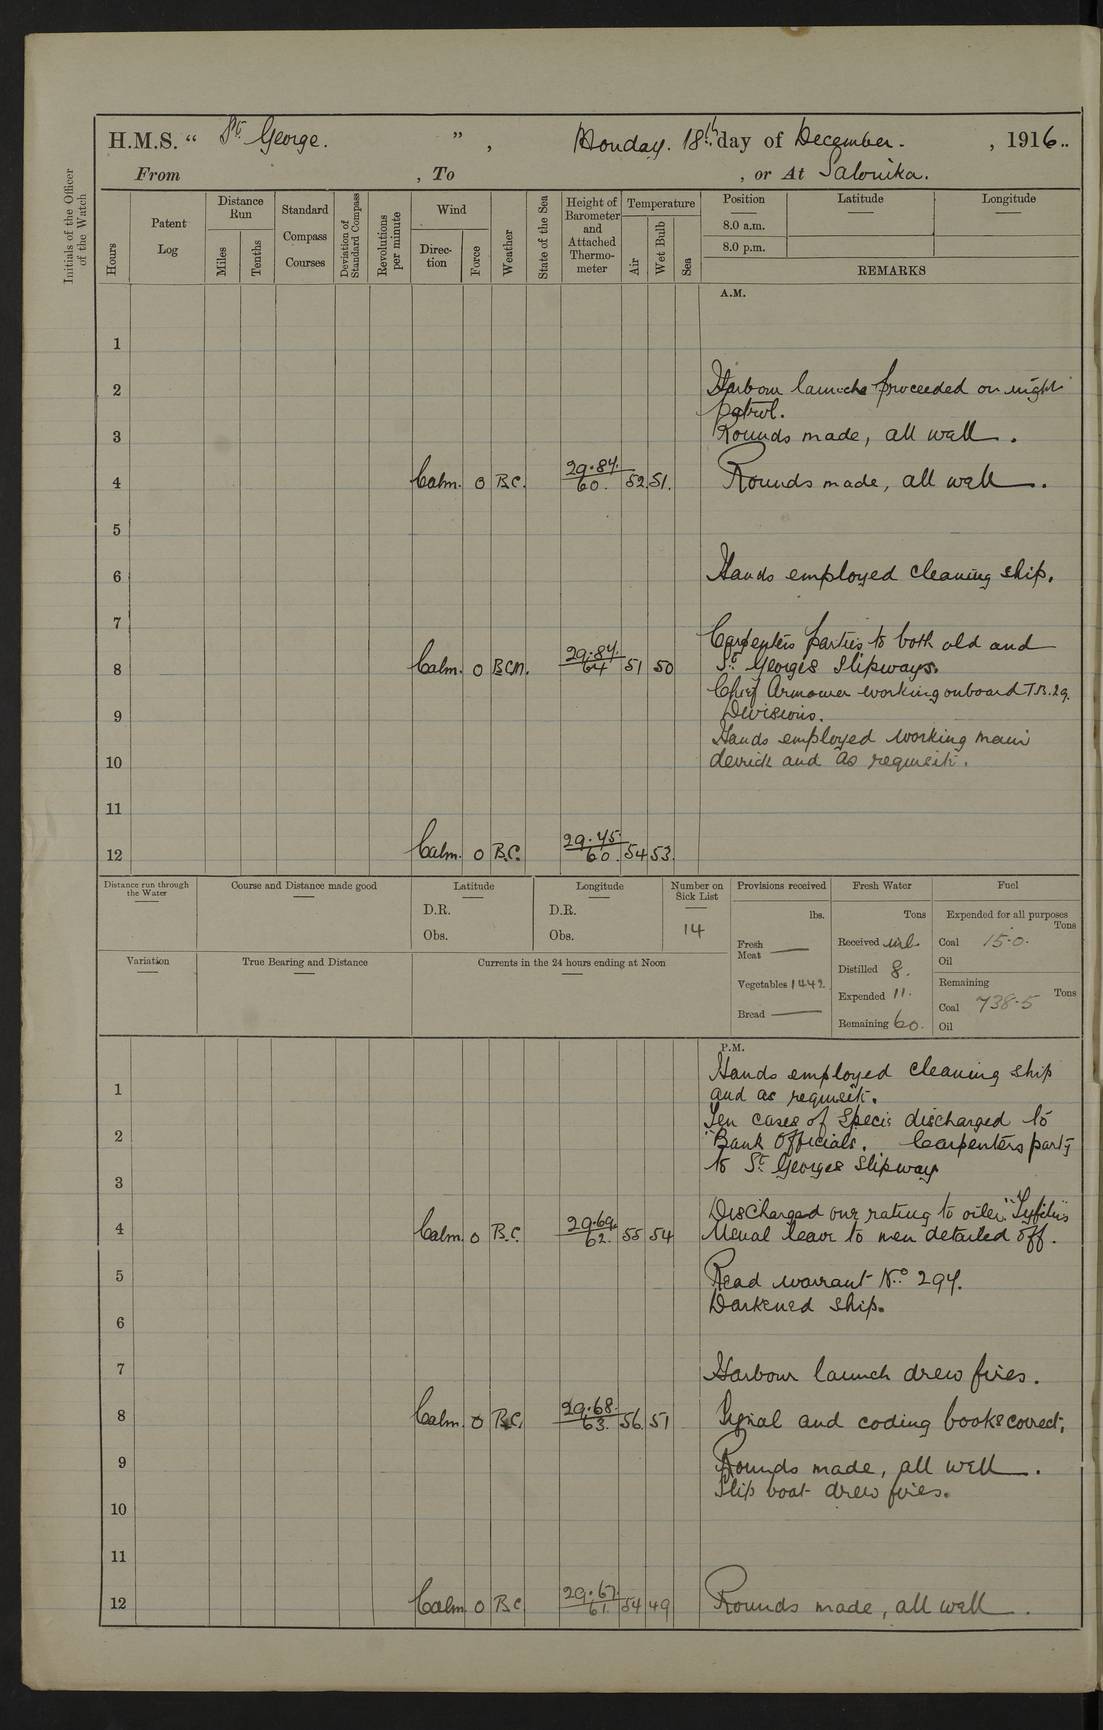 H.M.S. “ St. George. ” , Monday. 18th. day of December. , 1916..
From , To , or At Salonika.
Initials of the Officer
of the Watch
Hours
Patent
Log
Distance
Run
Miles
Tenths
Standard
Compass
Courses
Deviation of
Standard Compass
Revolutions
per minute
Wind
Direc-
tion
Force
Weather
State of the Sea
Height of
Barometer
and
Attached
Thermo-
meter
Temperature
Air
Wet Bulb
Sea
Position
8.0 a.m.
8.0 p.m.
Latitude
Longitude
REMARKS
A.M.
1
2 Harbour launche proceeded on night
patrol.
3 Rounds made, all well.
4 Calm. 0 B.C. 29.84. 60. 52. 51. Rounds made, all well.
5
6 Hands employed cleaning ship.
7
Carpenters parties to both old and
8 Calm. 0 B.C.M. 29.84. 64 51 50 St. Georges Slipways.
Chief Armourer working onboard T.B. 29.
9 Divisions.
Hands employed working main
10 derrick and as requisite.
11
12 Calm. 0 B.C. 29.45. 60. 54 53.
Distance run through
the Water
Course and Distance made good
Latitude
D.R.
Obs.
Longitude
D.R.
Obs.
Number on
Sick List
14
Provisions received
lbs.
Fresh
Meat
Vegetables 1442
Bread
Fresh Water
Tons
Received nil.
Distilled 8.
Expended 11.
Remaining 60.
Fuel
Expended for all purposes
Tons
Coal 15.0.
Oil
Remaining
Tons
Coal 738.5
Oil
Variation
True Bearing and Distance
Currents in the 24 hours ending at Noon
P.M.
Hands employed cleaning ship
1 and as requisite.
Ten cases of Specie discharged to
2 Bank Officials. Carpenters party
to St. Georges Slipway
3
Discharged one rating to oiler
4 Calm. 0 B.C. 29.69. 62. 55 54 Usual leave to men detailed off.
5 Read warrant No. 294.
Darkened ship.
6
7 Harbour launch drew fires.
8 Calm. 0 B.C. 29.68. 63. 56. 51 Signal and coding books correct,
9 Rounds made, all well.
Slip boat drew fires.
10
11
12 Calm 0 B.C 29.67. 61. 54 49 Rounds made, all well.